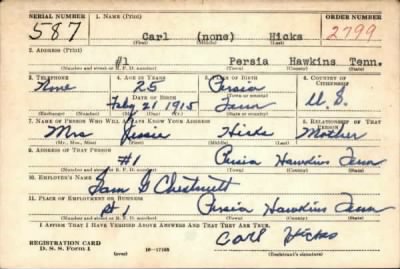 SERIAL NUMBER 1. NAME (Print) ORDER NUMBER
587 Carl (none) Hicks 2799
(First) (Middle) (Last)
2. ADDRESS (Print)
#1 Persia Hawkins Tenn.
(Number and street or R. F. D. number) (Town) (County) (State)
3. TELEPHONE 4. AGE IN YEARS 5. PLACE OF BIRTH 6. COUNTRY OF CITIZENSHIP
None 25 Persia
DATE OF BIRTH
Feby 21 1915 Tenn U. S.
(Exchange) (Number) (Mo.) (Day) (Yr.) (State or country)
7. NAME OF PERSON WHO WILL ALWAYS KNOW YOUR ADDRESS 8. RELATIONSHIP OF THAT PERSON
Mrs Jessie Hicks Mother
(Mr., Mrs., Miss) (First) (Middle) (Last)
9. ADDRESS OF THAT PERSON
#1 Persia Hawkins Tenn
(Number and street or R. F. D. number) (Town) (County) (State)
10. EMPLOYER'S NAME
Sam G Chestnutt
11. PLACE OF EMPLOYMENT OR BUSINESS
#1 Persia Hawkins Tenn
(Number and street or R. F. D. number) (Town) (County) (State)
I AFFIRM THAT I HAVE VERIFIED ABOVE ANSWERS AND THAT THEY ARE TRUE.
REGISTRATION CARD Carl Hicks
D. S. S. Form 1 (over) 16-17105